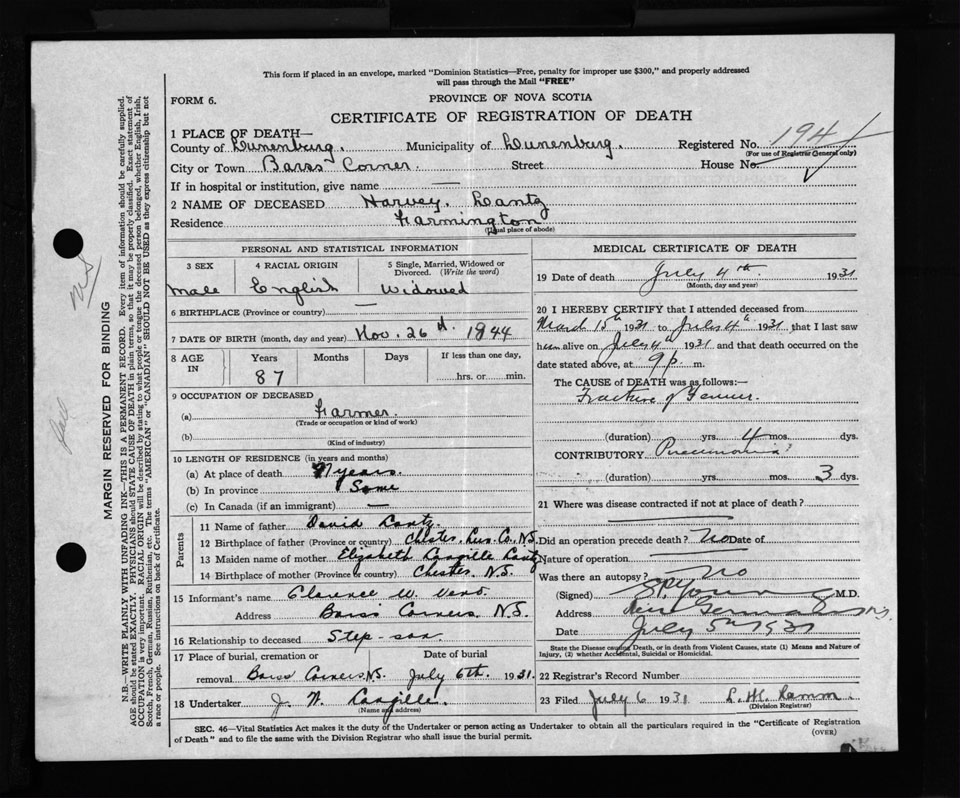 This form if placed in an envelope, marked "Dominion Statistics—Free, penalty for improper use $300," and properly addressed
will pass through the Mail "FREE"
FORM 6.
PROVINCE OF NOVA SCOTIA
CERTIFICATE OF REGISTRATION OF DEATH
1 PLACE OF DEATH—
County of Lunenburg. Municipality of Lunenburg. Registered No. 194
(For use of Registrar General only)
City or Town Barss Corner. Street House No.
If in hospital or institution, give name —
2 NAME OF DECEASED Harvey. Lantz
Residence Farmington
(Usual place of abode)
PERSONAL AND STATISTICAL INFORMATION
3 SEX 4 RACIAL ORIGIN 5 Single, Married, Widowed or Divorced. (Write the word)
male English Widowed
6 BIRTHPLACE (Province or country) —
7 DATE OF BIRTH (month, day and year) Nov. 26 1844
8 AGE IN Years Months Days If less than one day,
87 hrs. or min.
9 OCCUPATION OF DECEASED
(a) Farmer.
(Trade or occupation or kind of work)
(b)
(Kind of industry)
10 LENGTH OF RESIDENCE (in years and months)
(a) At place of death years.
(b) In province Same
(c) In Canada (if an immigrant) —
Parents
11 Name of father David Lantz.
12 Birthplace of father (Province or country) Chester, Lun. Co. N.S.
13 Maiden name of mother Elizabeth Langille Lantz
14 Birthplace of mother (Province or country) Chester. N.S.
15 Informant's name Clarence W.
Address Barss Corners, N.S.
16 Relationship to deceased Step-son
17 Place of burial, cremation or Date of burial
removal Barss Corners N.S. July 6th. 1931.
18 Undertaker J. W. Langille.
(Name and address)
MEDICAL CERTIFICATE OF DEATH
19 Date of death July 4th. 1931
(Month, day and year)
20 I HEREBY CERTIFY that I attended deceased from
March 15th 1931 to July 4th 1931 that I last saw
him alive on July 4th 1931 and that death occurred on the
date stated above, at 9 p. m.
The CAUSE of DEATH was as follows:—
Fracture of Femur.
(duration) yrs. 4 mos. dys.
CONTRIBUTORY Pneumonia
(duration) yrs. mos. 3 dys.
21 Where was disease contracted if not at place of death?
Did an operation precede death? No Date of
Nature of operation
Was there an autopsy? No
(Signed) Young M.D.
Address New Germany N.S.
Date July 5th 1931
State the Disease causing Death, or in death from Violent Causes, state (1) Means and Nature of
Injury, (2) whether Accidental, Suicidal or Homicidal.
22 Registrar's Record Number
23 Filed July 6 1931 Ramm.
(Division Registrar)
SEC. 46—Vital Statistics Act makes it the duty of the Undertaker or person acting as Undertaker to obtain all the particulars required in the "Certificate of Registration
of Death" and to file the same with the Division Registrar who shall issue the burial permit.
(OVER)
MARGIN RESERVED FOR BINDING
N.B.—WRITE PLAINLY WITH UNFADING INK—THIS IS A PERMANENT RECORD. Every item of information should be carefully supplied.
AGE should be stated EXACTLY. PHYSICIANS should STATE CAUSE OF DEATH in plain terms, so that it may be properly classified. Exact statement of
OCCUPATION is very important. RACIAL ORIGIN will be described by stating to what people or tongue the deceased person belonged, whether English, Irish,
Scotch, French, German, Russian, Ruthenian, etc. The terms "AMERICAN" or "CANADIAN" SHOULD NOT BE USED as they express citizenship but not
a race or people. See instructions on back of Certificate.